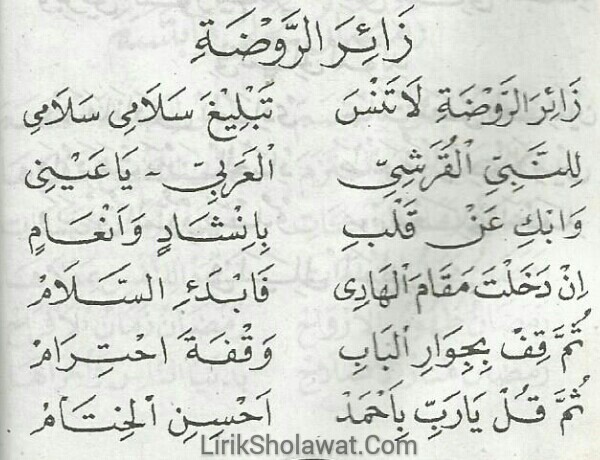 زَائِرَ الرَّوْضَةِ
زَائِرَ الرَّوْضَةِ لَاتَنْسَ تَبْلِيْغَ سَلَامِى سَلَامِى
لِلنَّبِيِّ الْقُرَشِيِّ الْعَرَبِيِّ - يَاعَيْنِى
وَابْكِ عَنْ قَلْبِ بِاِنْشَادٍ وَاَنْغَامٍ
اِنْ دَخَلْتَ مَقَامَ الْهَادِى فَابْدَءِ السَّلَامْ
ثُمَّ قِفْ بِجِوَارِ الْبَابِ وَقْفَةَ احْتِرَامْ
ثُمَّ قُلْ يَارَبِّ بِاَحْمَدْ اَحْسِنِ الْخِتَامْ
LirikSholawat.Com